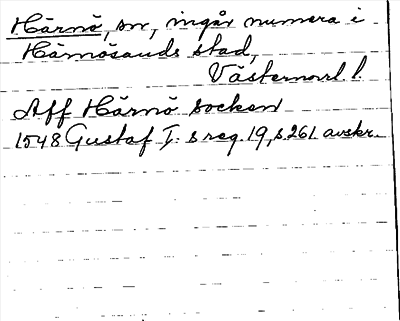 Härnö, sn, ingår numera i
Härnösands stad,
Västernorrl l.
Aff Härnö socken
1548 Gustaf I:s reg. 19, s. 261 avskr.